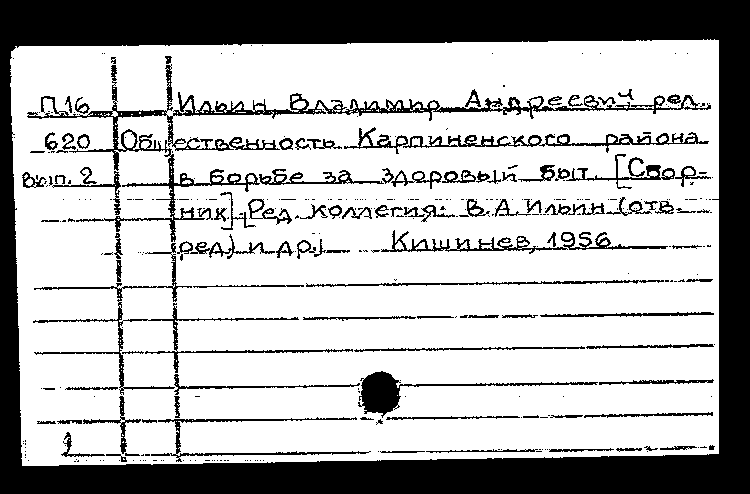 П.16 Ильин, Владимир Андреевич ред.
620 Общественность Карпиненского района
Вып. 2 в борьбе за здоровый быт. [Сбор-
ник]. [Ред. коллегия: В.А. Ильин (отв.
ред.) и др.] Кишинев, 1956.